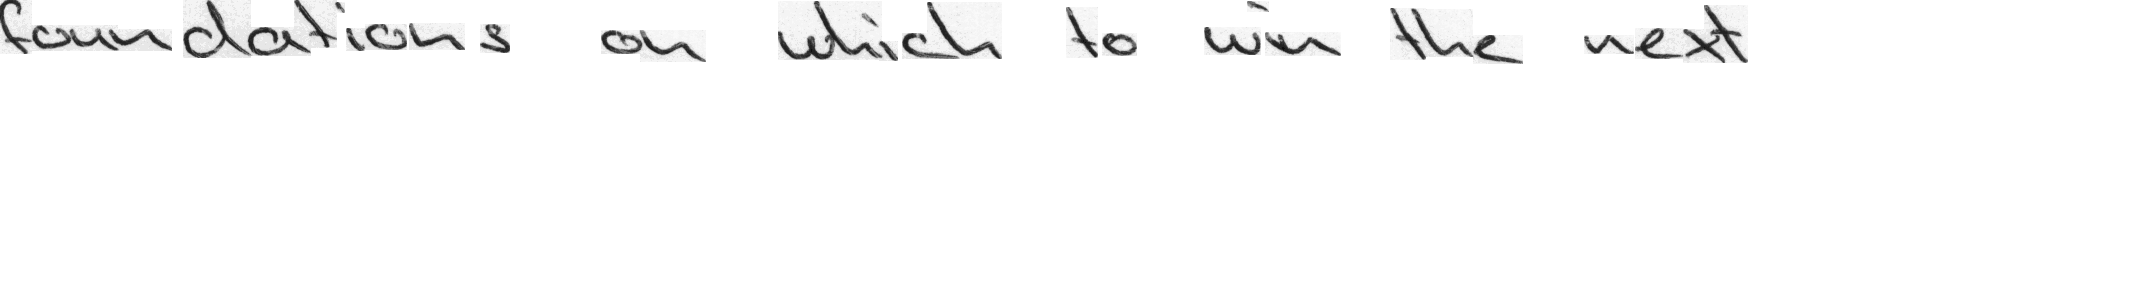 foundations on which to win the next